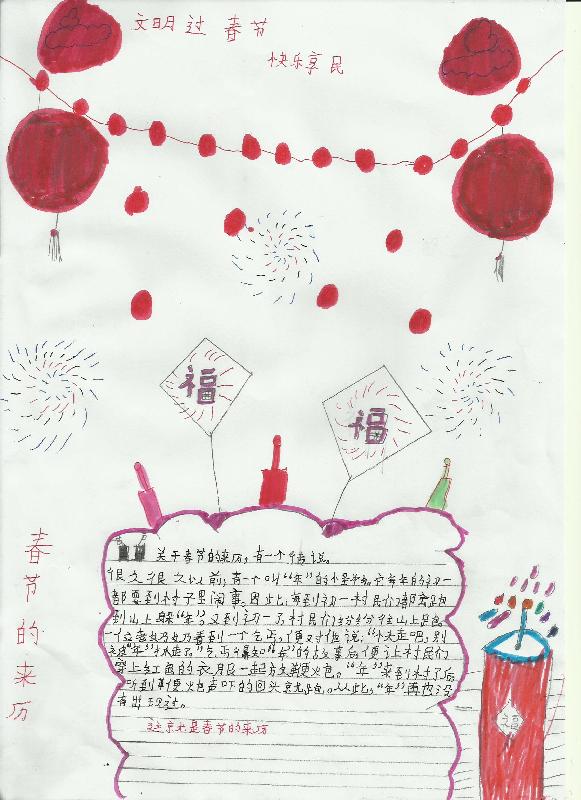 文明过春节
快乐享民
福
福
春节的来历
关于春节的来历，有一个传说。
很久很久以前，有一个叫“年”的怪物。它每年的初一
都要到村子里闹事。因此，每到初一村民们都会跑
到山上躲“年”。又到初一了村民们纷纷往山上跑
一位老奶奶看到一个乞丐，便对他说，“快走吧，别
“年”的故事后便让村民们
穿上红色的衣服一起放鞭火包。“年”来到村子后
听到鞭火包声吓的回头就跑。从此，“年”再也没
有出现过。
这就是春节的来历
福